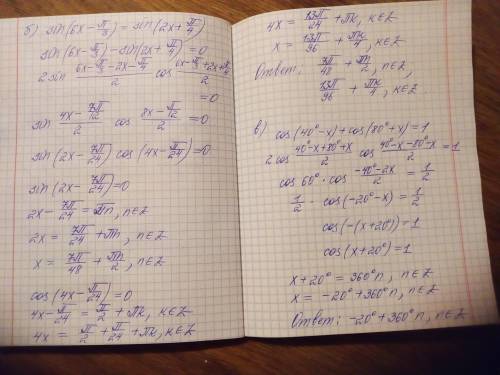 б) sin(6x - π/3) = sin(2x + π/4)
sin(6x - π/3) - sin(2x + π/4) = 0
2 sin (6x - π/3 - 2x - π/4)/2 cos (6x - π/3 + 2x + π/4)/2
= 0
sin (4x - 7π/12)/2 cos (8x - π/12)/2 = 0
sin(2x - 7π/24) cos(4x - π/24) = 0
sin(2x - 7π/24) = 0
2x - 7π/24 = πn, n∈Z
2x = 7π/24 + πn, n∈Z
x = 7π/48 + πn/2, n∈Z
cos(4x - π/24) = 0
4x - π/24 = π/2 + πk, k∈Z
4x = π/2 + π/24 + πk, k∈Z
4x = 13π/24 + πk, k∈Z
x = 13π/96 + πk/4, k∈Z
Ответ: 7π/48 + πn/2, n∈Z,
13π/96 + πk/4, k∈Z
в) cos(40° - x) + cos(80° + x) = 1
2 cos (40° - x + 80° + x)/2 cos (40° - x - 80° - x)/2 = 1
cos 60° · cos (-40° - 2x)/2 = 1/2
1/2 · cos(-20° - x) = 1/2
cos(-(x + 20°)) = 1
cos(x + 20°) = 1
x + 20° = 360°n, n∈Z
x = -20° + 360°n, n∈Z
Ответ: -20° + 360°n, n∈Z